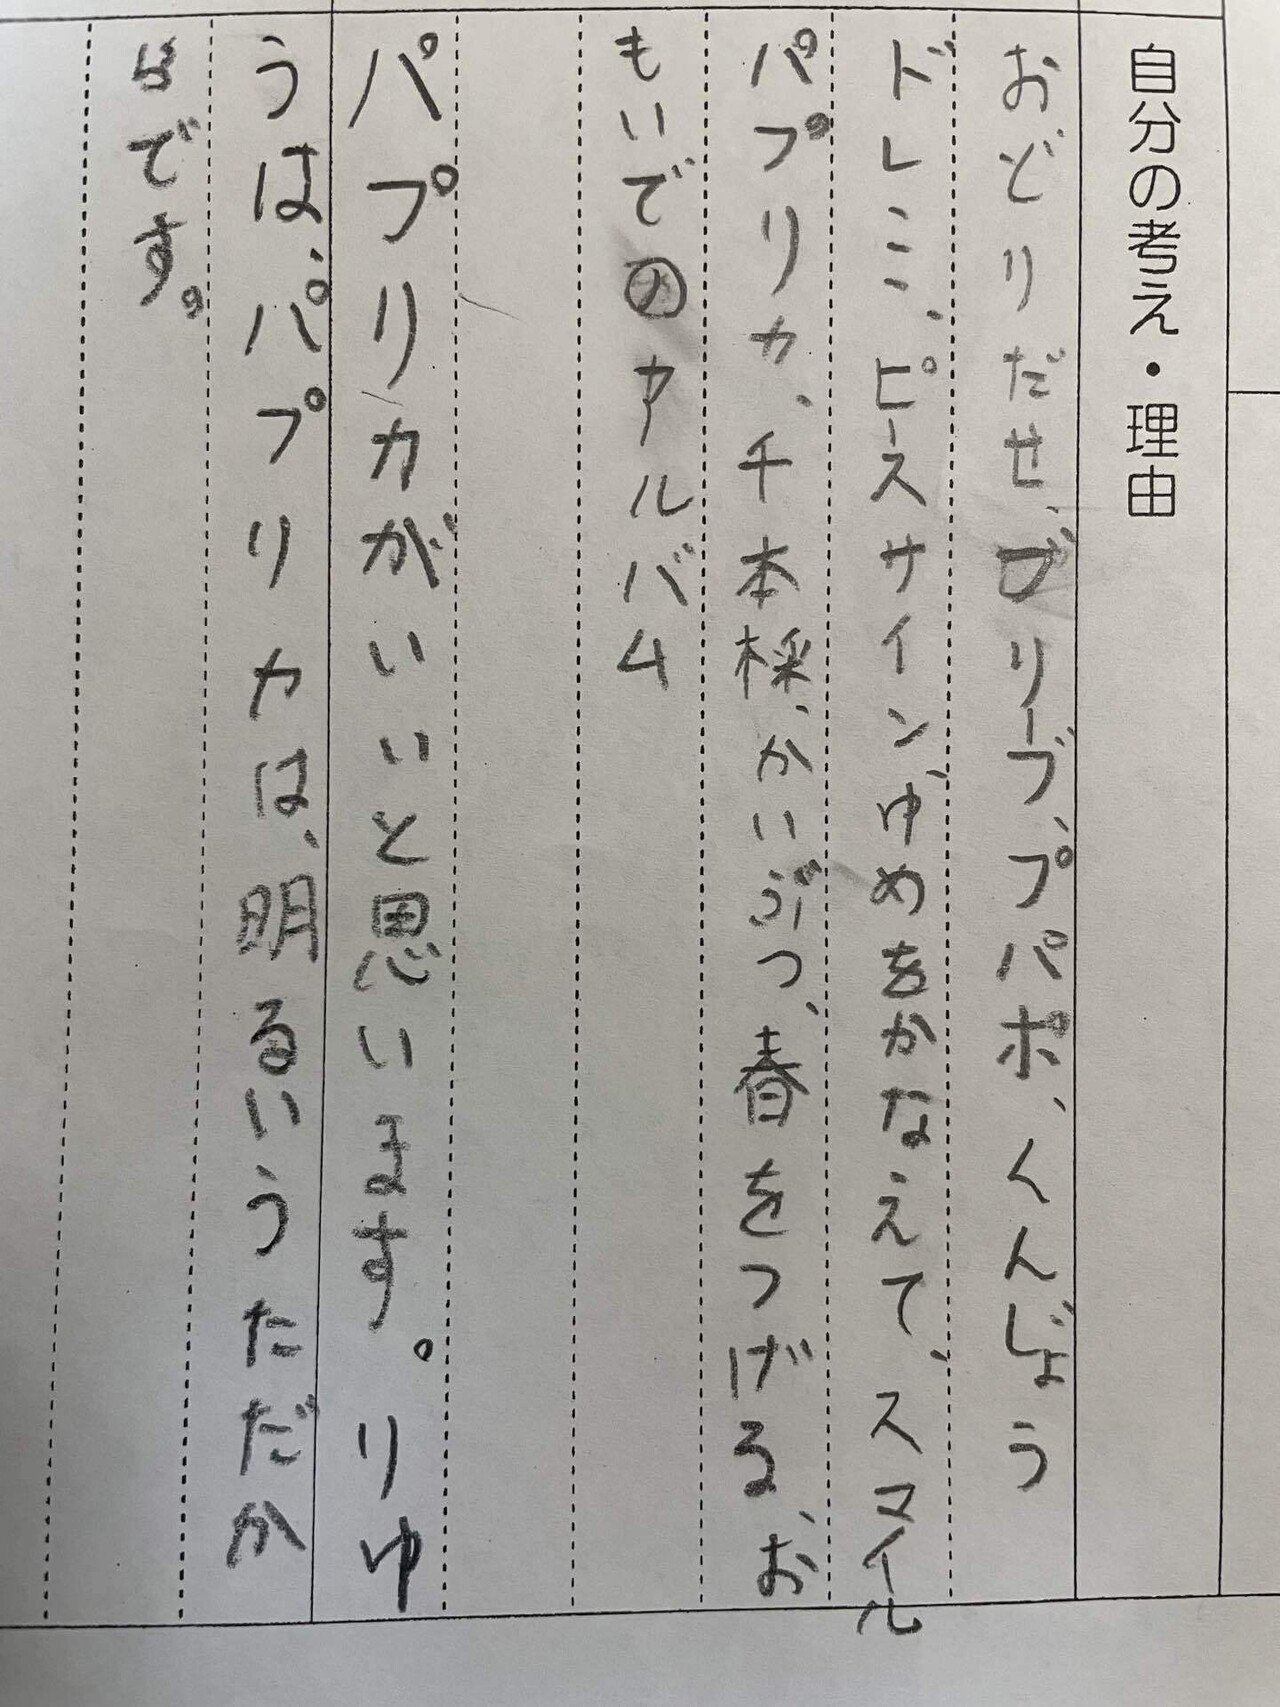 自分の考え・理由
おどりだせ、ブリーブ、プパポ、くんじょう
ドレミ、ピースサイン、ゆめをかなえて、スマイル
パプリカ、千本桜、かいぶつ、春をつげる、お
もいでのアルバム
パプリカがいいと思います。りゆ
うは、パプリカは、明るいうただか
らです。